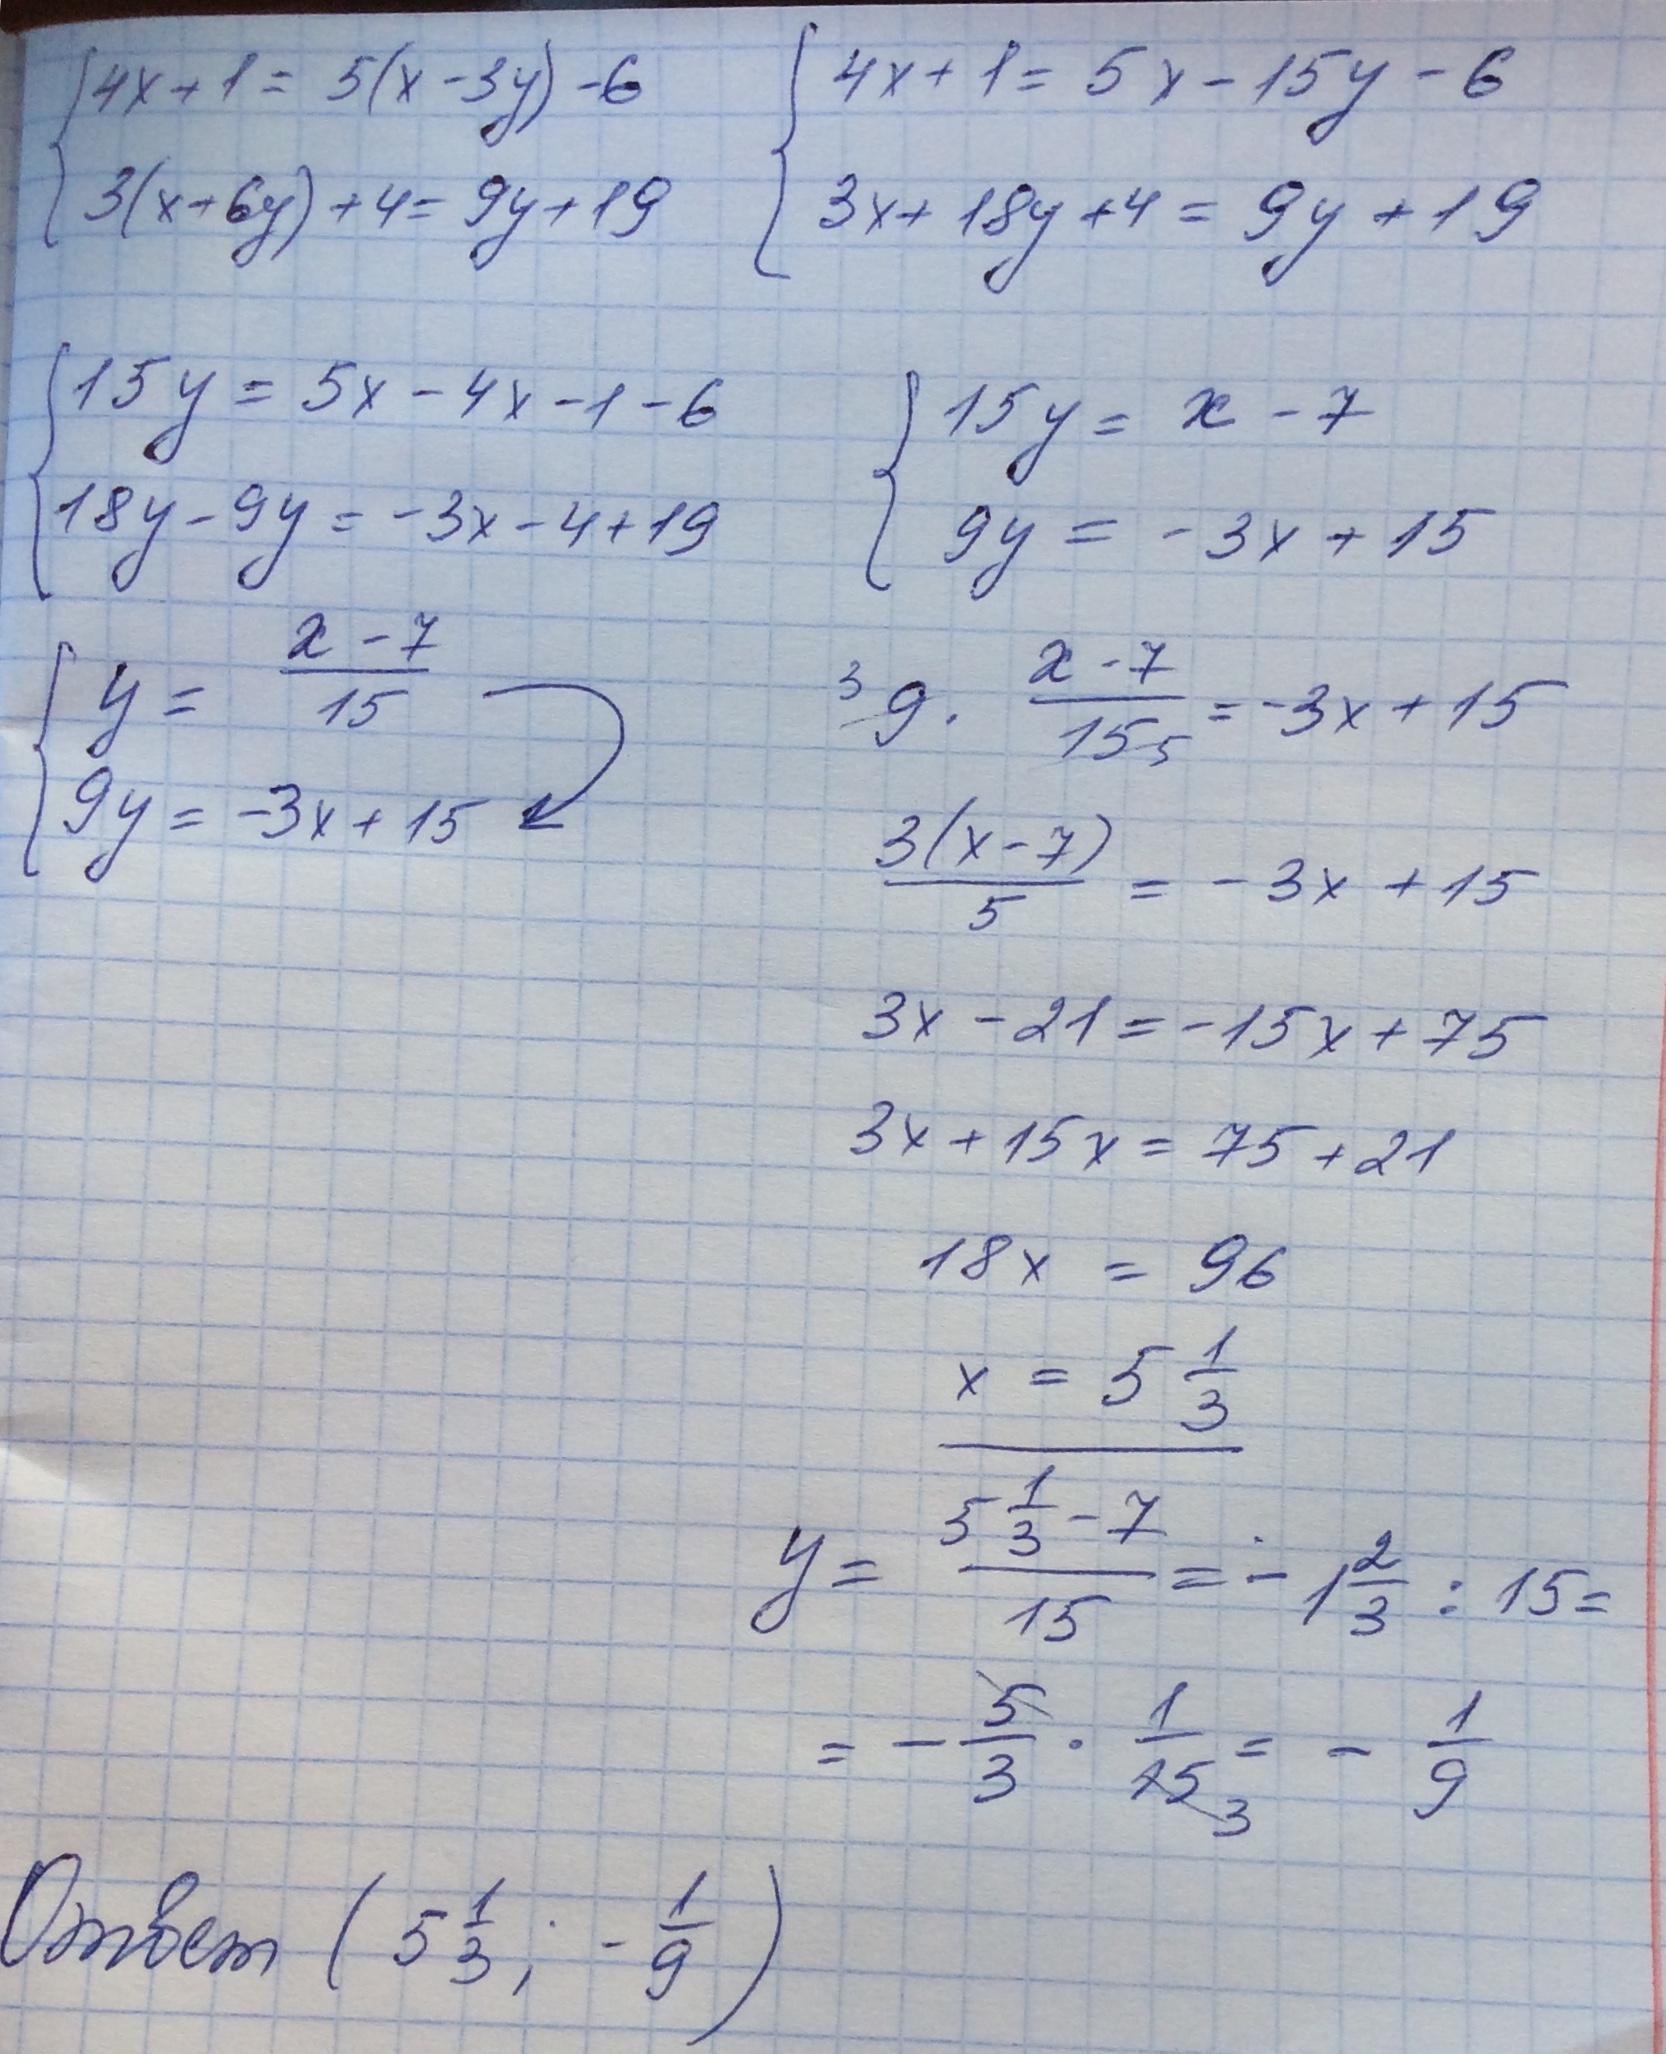 {4x+1= 5(x-3y)-6
{3(x+6y)+4= 9y+19
{4x+1= 5x-15y-6
{3x+18y+4= 9y+19
{15y= 5x-4x-1-6
{18y-9y= -3x-4+19
{15y= x-7
{9y= -3x+15
{y= (x-7)/15
{9y= -3x+15
³9· (x-7)/15₅ = -3x+15
3(x-7)/5 = -3x+15
3x-21=-15x+75
3x+15x= 75+21
18x = 96
x = 5 1/3
y= (5 1/3 -7)/15 = -1 2/3 : 15=
= - 5/3 · 1/15 3 = - 1/9
Ответ (5 1/3; - 1/9)